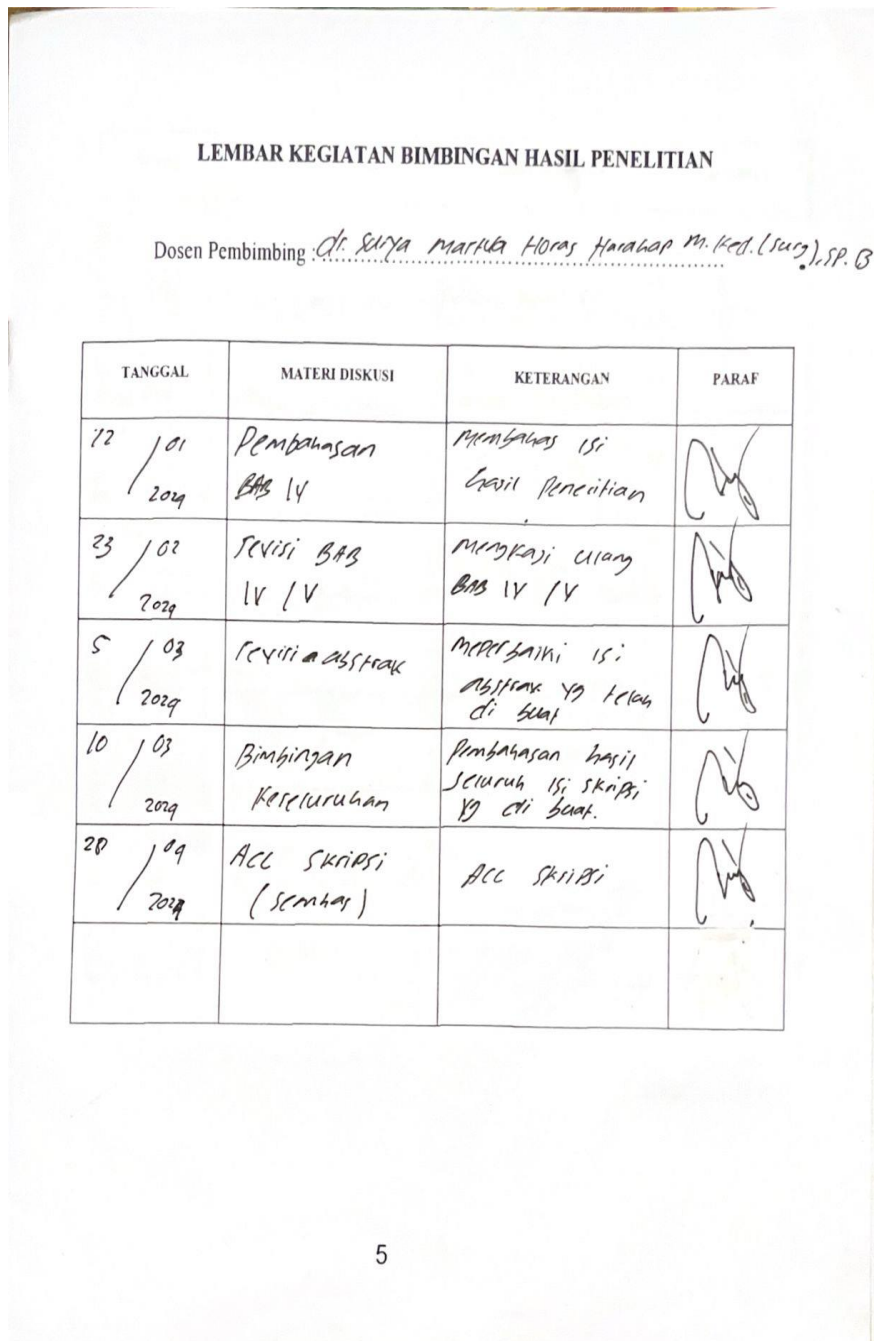 LEMBAR KEGIATAN BIMBINGAN HASIL PENELITIAN
Dosen Pembimbing : dr. Surya Horas Harahap M.Ked.(Surg), SP.B
TANGGAL MATERI DISKUSI KETERANGAN PARAF
12 / 01 / 2024 Pembahasan BAB IV Membahas isi hasil Penelitian
23 / 02 / 2024 revisi BAB IV / V Mengkaji Ulang BAB IV / V
5 / 03 / 2024 revisi abstrak Meperbaiki isi abstrak yg telah di buat
10 / 03 / 2024 Bimbingan Keseluruhan Pembahasan hasil seluruh isi skripsi yg di buat.
/ 2024 ACC Skripsi (semhas) ACC Skripsi
5